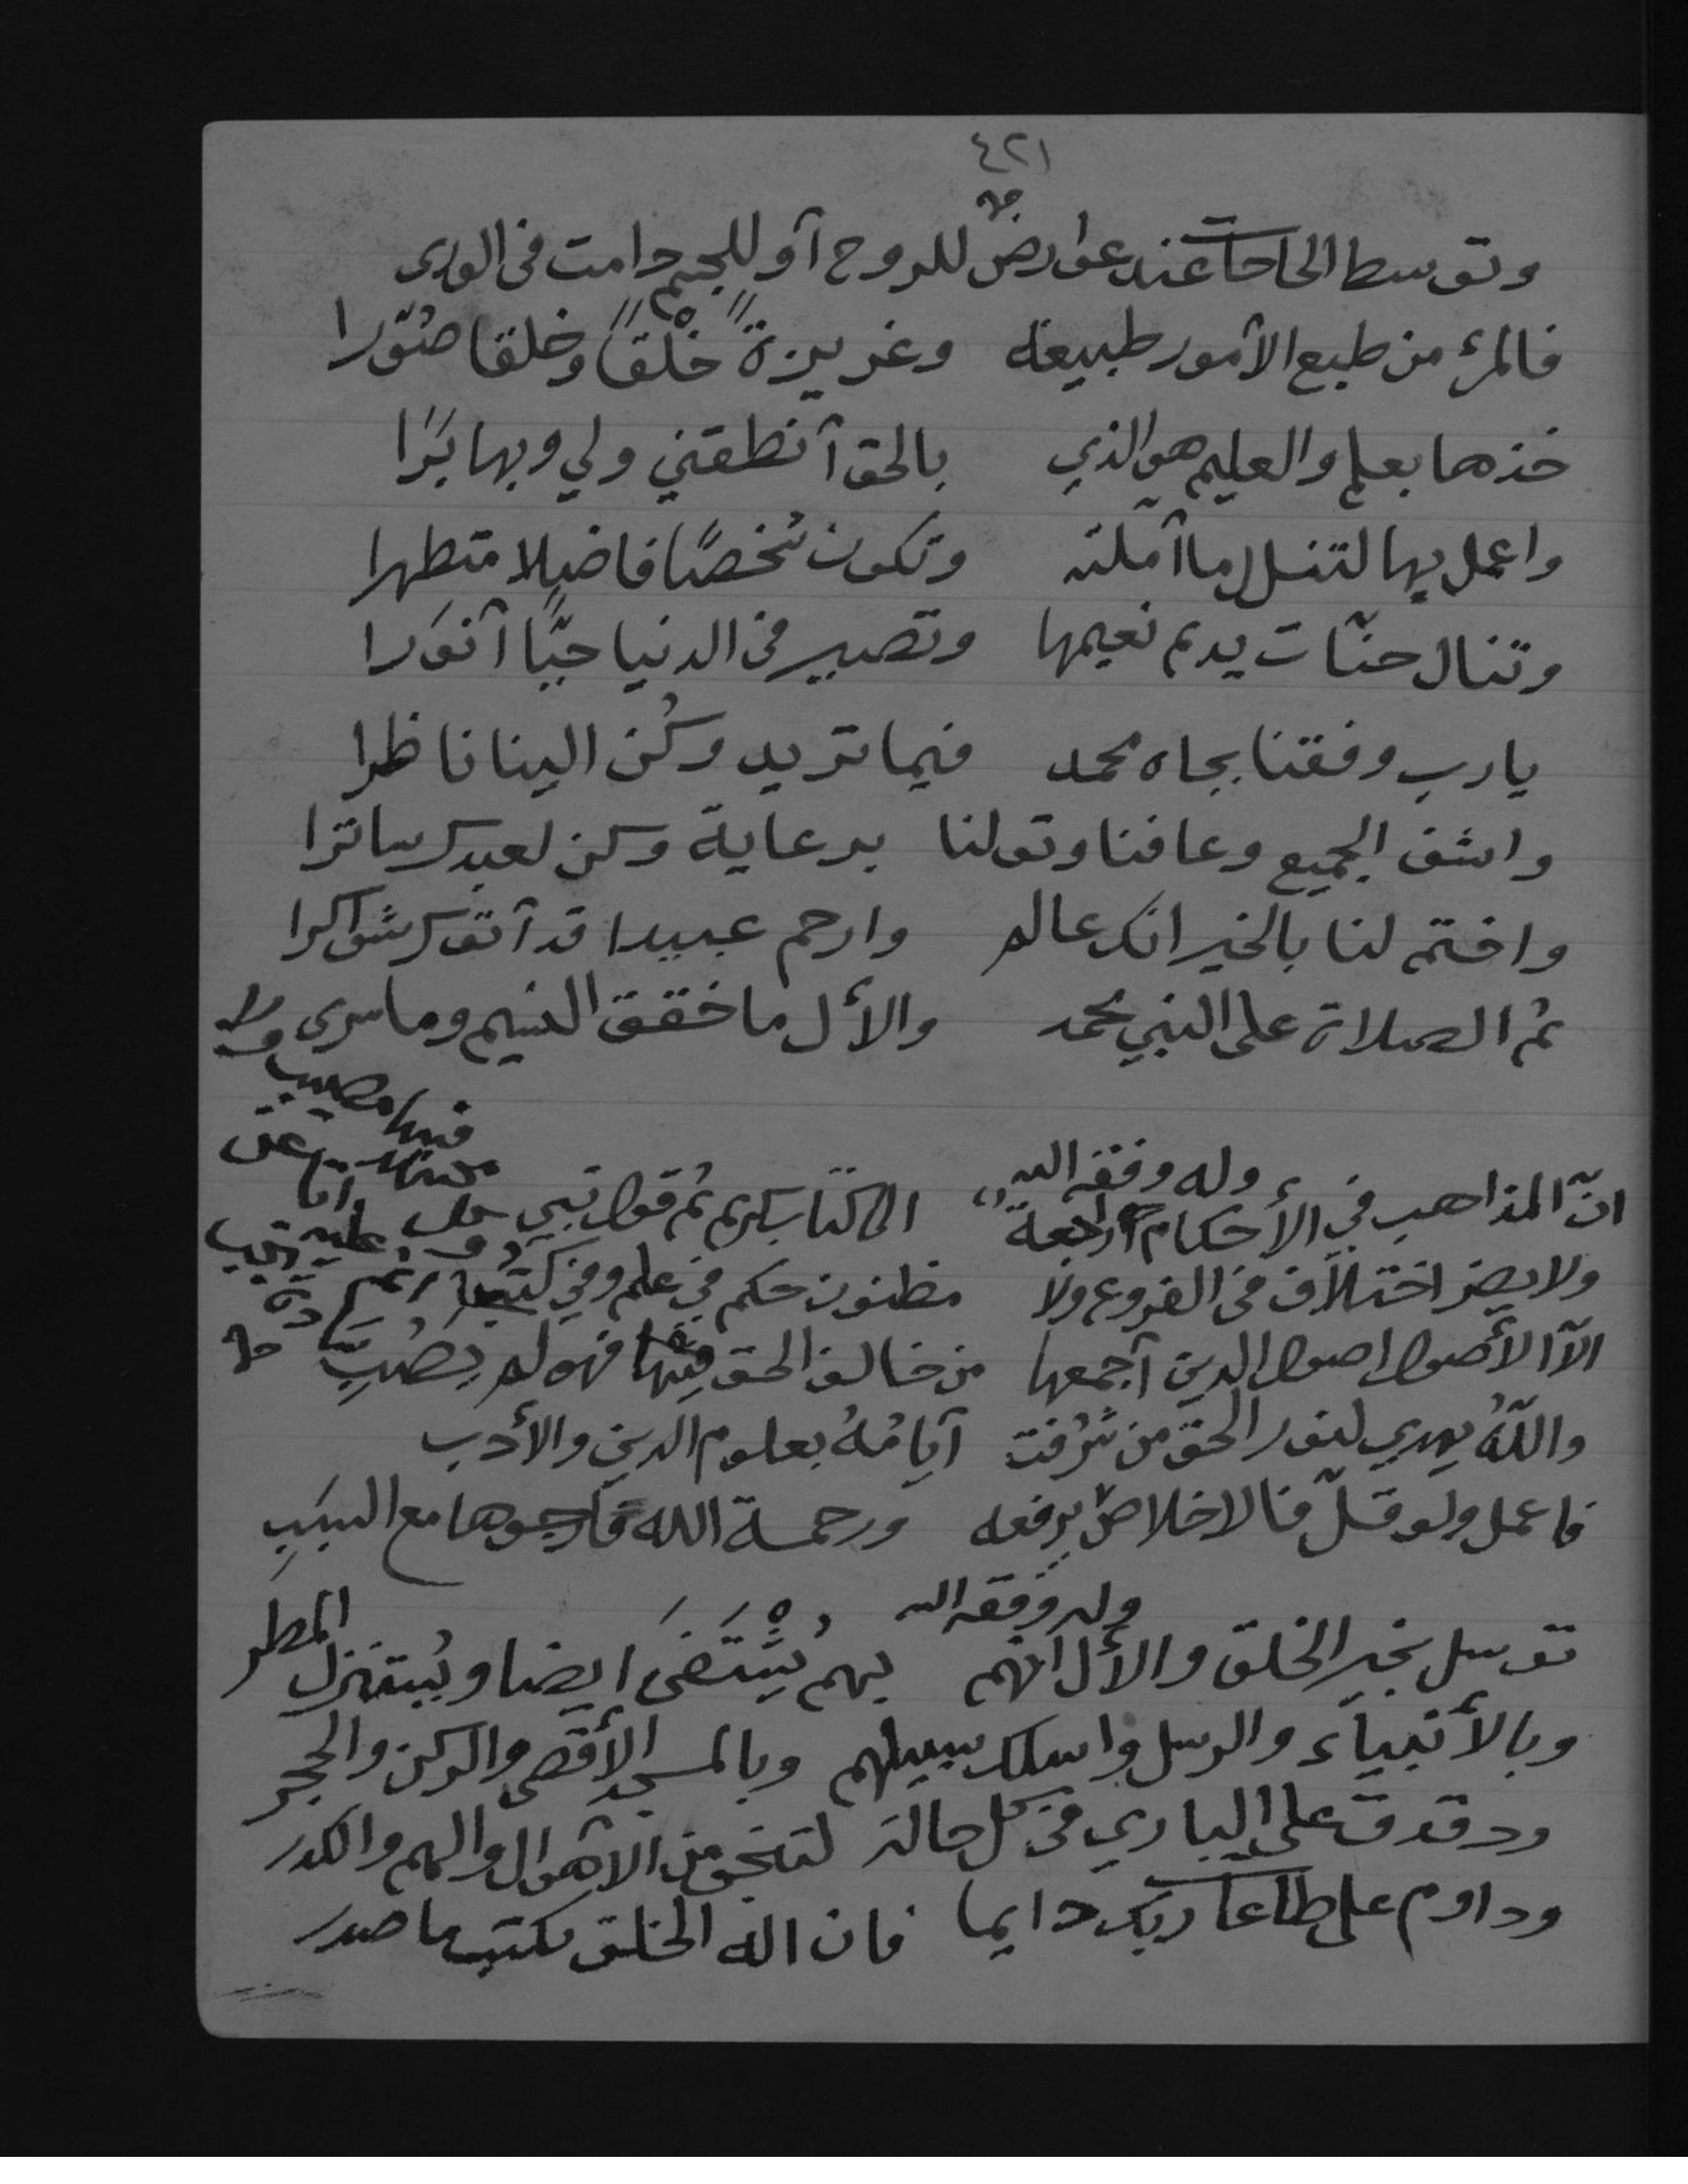 ٤٢١
وتوسط الحاجات عند عوارض للروح أو للجسم دامت فى الورى
فالمرء من طبع الأمور طبيعة وغريزة خَلْقاً وخلقا صُوّرا
خذها بعلم والعليم هو الذي بالحق أنطقني ولي وبها بَرَا
واعمل بها لتنل لما أملته وتكون شخصًا فاضلا متطهرا
وتنال جنّات يدم نعيمها وتصير فى الدنيا حبًّا أنورا
يارب وفقنا بجاه محمد فيما تريد وكُن الينا ناظرا
واشف الجميع وعافنا وتولنا برعاية وكن لعبدك ساترا
واختم لنا بالخير انك عالم وارحم عبيدا قد أتوك شواكرا
ثم الصلاة على النبي محمد والأل ما خفق النسيم وما سرى
وله وفقه الله
انّ المذاهب في الأحكام راجعة الى كتاب كريم ثم قول نبي
ولا يضر اختلاف فى الفروع ولا مظنون حكم في علم وفي كتب
الاّ الأصول اصول الدين أجمعها من خالف الحق فيها فهو لم يصُبِ
واللّهُ يهدي لنور الحق من شرُفت أيامُهُ بعلوم الدين والأدب
فاعمل ولو قلّ فالاخلاص يرفعه ورحمة الله فارجوها مع السبَبِ
وله وفقه الله
توسل بخير الخلق والأل انهم بهم يُسْتَضَى ايضا ويُستنزل المطر
وبالأنبياء والرسل واسلك سبيلهم وبالمسجد الأقصى والركن والحجر
ودقدق على الباري فى كل حالة لتنجو من الاهوال والهم والكدر
وداوم على طاعات ربك دايما فان اله الخلق يكتب ما صدر